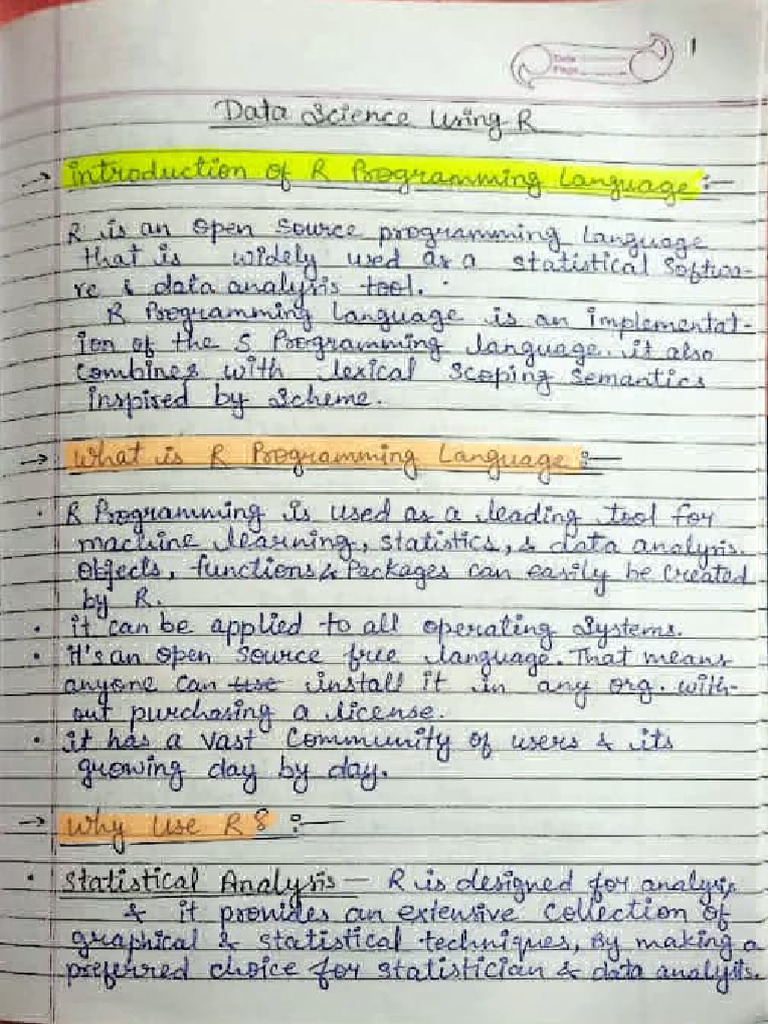 Date
Page
1
Data Science Using R
→ introduction of R Programming Language :-
R is an open source programming language
that is widely used as a statistical softwa-
re & data analysis tool.
R Programming language is an implementat-
ion of the S Programming language. it also
combines with lexical scoping semantics
inspired by scheme.
→ What is R Programming Language :-
• R Programming is used as a leading tool for
machine learning, statistics, & data analysis.
Objects, functions & Packages can easily be created
by R.
• it can be applied to all operating systems.
• it's an open source free language. That means
anyone can use install it in any org. with-
out purchasing a license.
• it has a vast community of users & its
growing day by day.
→ Why Use R 8 :-
• Statistical Analysis — R is designed for analysis
& it provides an extensive collection of
graphical & statistical techniques, By making a
preferred choice for statistician & data analysts.